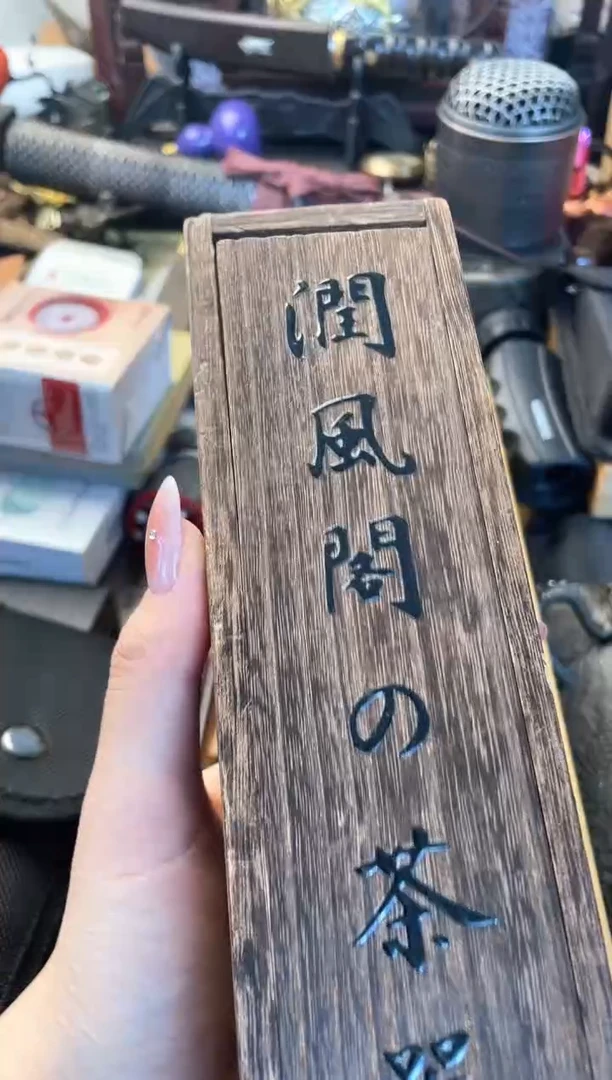 潤風閣の茶